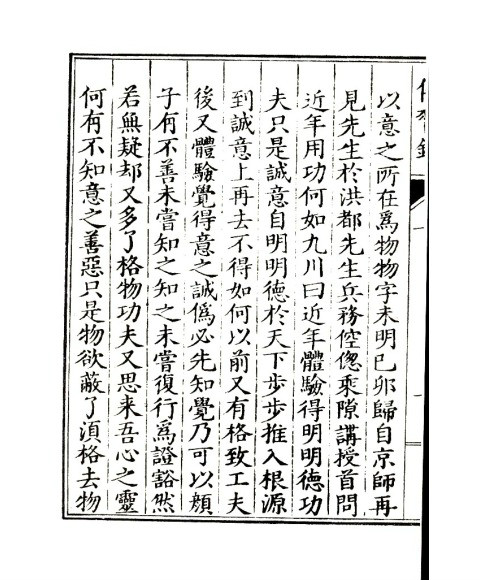 以意之所在爲物物字未明已夘歸自京師再
見先生於洪都先生兵務倥傯乘隙講授首問
近年用功何如九川曰近年體驗得明明德功
夫只是誠意自明明德於天下步步推入根源
到誠意上再去不得如何以前又有格致工夫
後又體驗覺得意之誠僞必先知覺乃可以顔
子有不善未嘗知之知之未嘗復行爲證豁然
若無疑却又多了格物功夫又思来吾心之靈
何有不知意之善惡只是物欲蔽了湏格去物